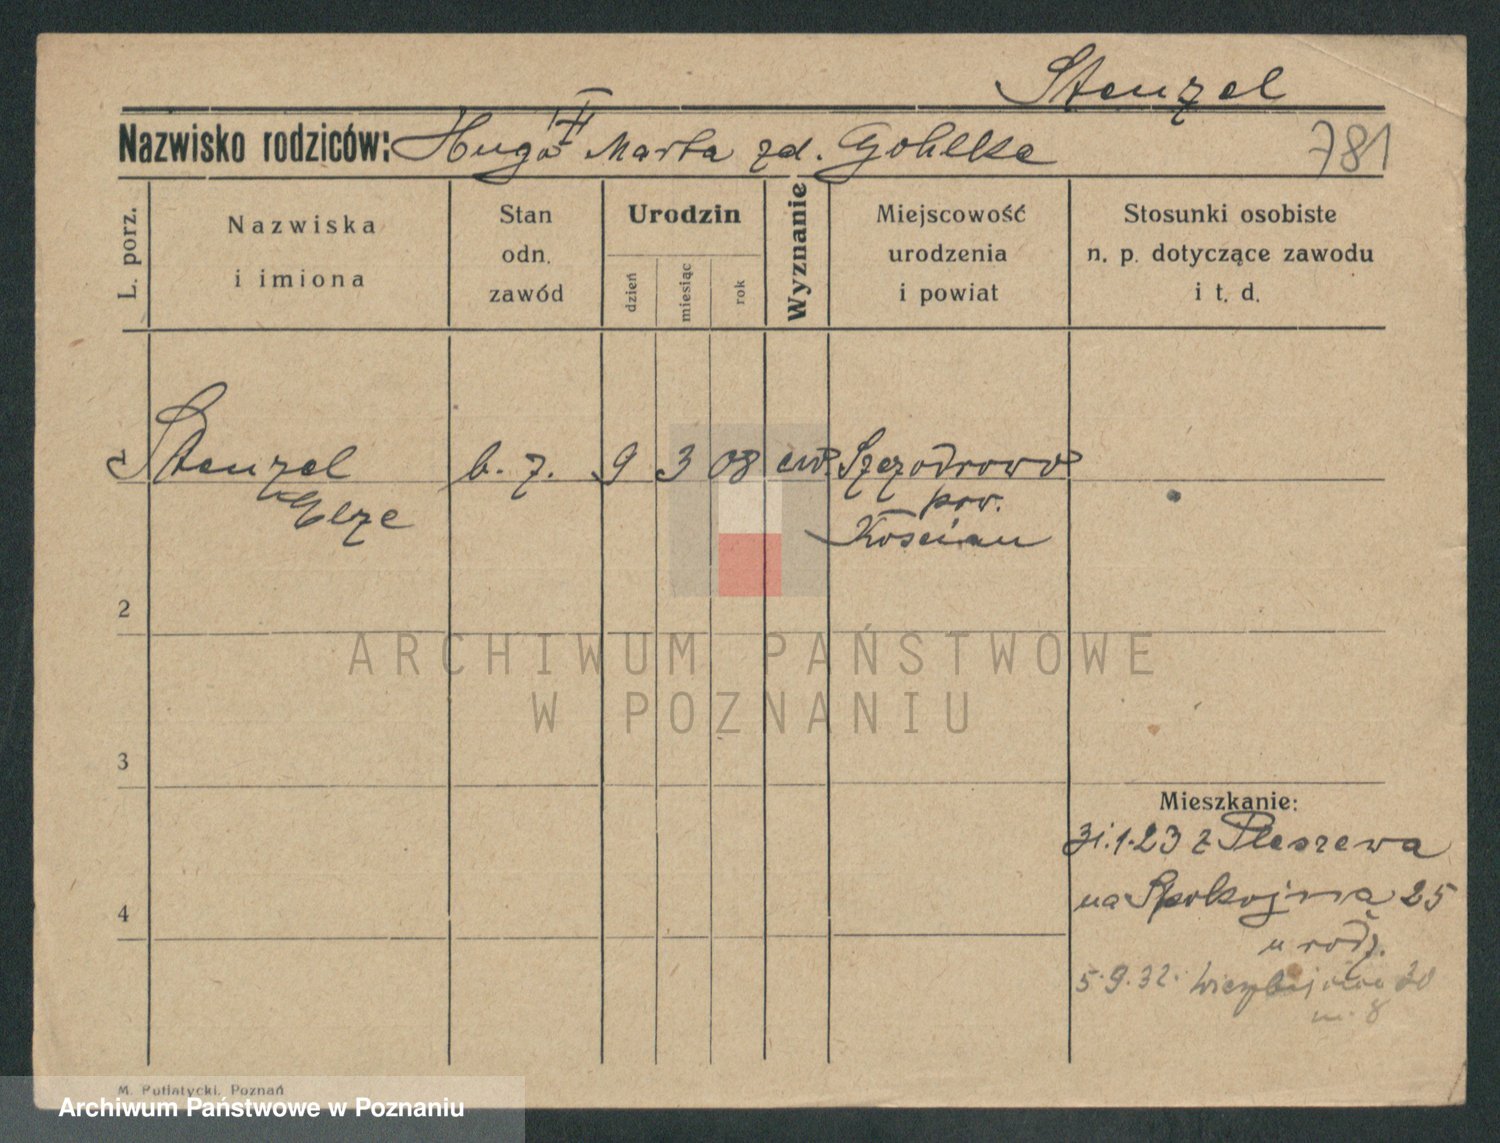 Stenzel
Nazwisko rodziców: Hugo II Marta zd. Gohlke
781
L. porz.
Nazwiska
i imiona
Stan
odn.
zawód
Urodzin
dzień
miesiąc
rok
Wyznanie
Miejscowość
urodzenia
i powiat
Stosunki osobiste
n. p. dotyczące zawodu
i t. d.
1 Stenzel b. z. 9 3 08 ew. Szczodrowo
Elze
pow.
Kościan
2
3
4
Mieszkanie:
31.1.23 z Pleszewa
na Spokojna 25
u rodz.
5.9.32. 30
m. 8
M. Putiatycki, Poznań
ARCHIWUM PAŃSTWOWE
W POZNANIU
Archiwum Państwowe w Poznaniu